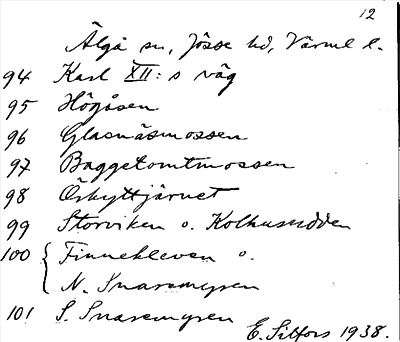 12
Älgå sn, Jösse hd, Värml l.
94 Karl XII:s väg
95 Högåsen
96 Glasnäsmossen
97 Baggetomtmossen
98 Örhyttjärnet
99 Storviken o. Kolhusudden
100 { Finnekleven o.
N. Snaremyren
101 S. Snaremyren
E. Sitfors 1938.